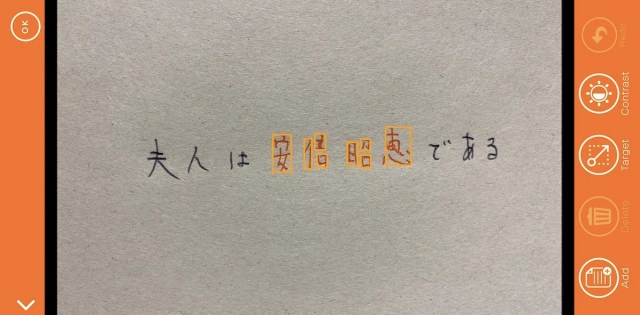 夫人は安倍昭恵である
OK
Redo
Contrast
Target
Delete
Add